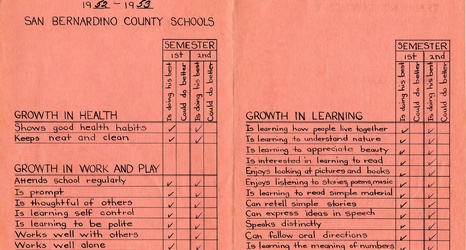 1952 - 1953
SAN BERNARDINO COUNTY SCHOOLS
SEMESTER
1st 2nd
Is doing his best
Could do better
Is doing his best
Could do better
GROWTH IN HEALTH
Shows good health habits ✓ ✓
Keeps neat and clean ✓ ✓
GROWTH IN WORK AND PLAY
Attends school regularly ✓ ✓
Is prompt ✓ ✓
Is thoughtful of others ✓ ✓
Is learning self control ✓ ✓
Is learning to be polite ✓ ✓
Works well with others ✓ ✓
Works well alone ✓ ✓
SEMESTER
1st 2nd
Is doing his best
Could do better
Is doing his best
Could do better
GROWTH IN LEARNING
Is learning how people live together ✓ ✓
Is learning to understand nature ✓ ✓
Is learning to appreciate beauty ✓ ✓
Is interested in learning to read ✓ ✓
Enjoys looking at pictures and books ✓ ✓
Enjoys listening to stories, poems, music ✓ ✓
Is learning to read simple material ✓ ✓
Can retell simple stories ✓ ✓
Can express ideas in speech ✓ ✓
Speaks distinctly ✓ ✓
Can follow oral directions ✓ ✓
Is learning the meaning of numbers ✓ ✓